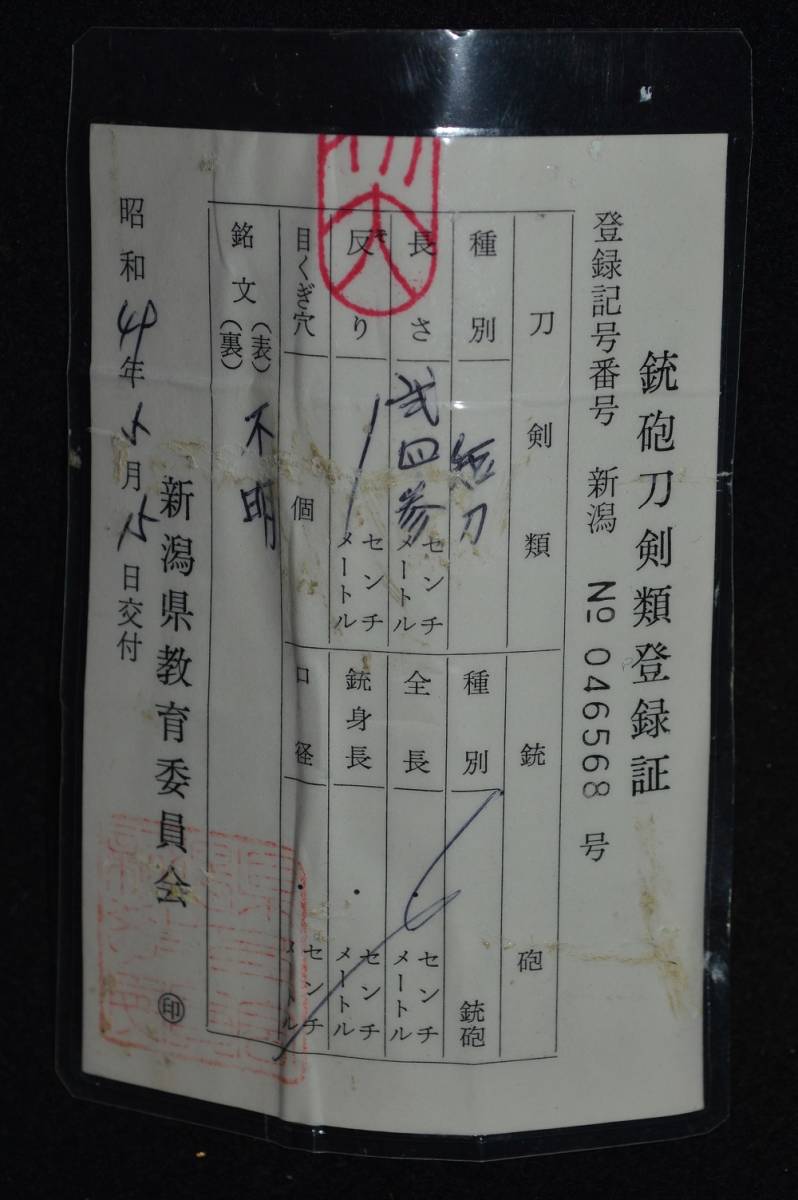 銃砲刀剣類登録証
登録記号番号 新潟 № 046568 号
刀剣類 銃砲
種別 短刀 種別 銃砲
長さ 弐四参 センチメートル 全長 ・ センチメートル
反り センチメートル 銃身長 ・ センチメートル
目くぎ穴 個 口径 ・ センチメートル
銘文 (表) (裏) 不明
新潟県教育委員会 ㊞
昭和 年 月 日交付